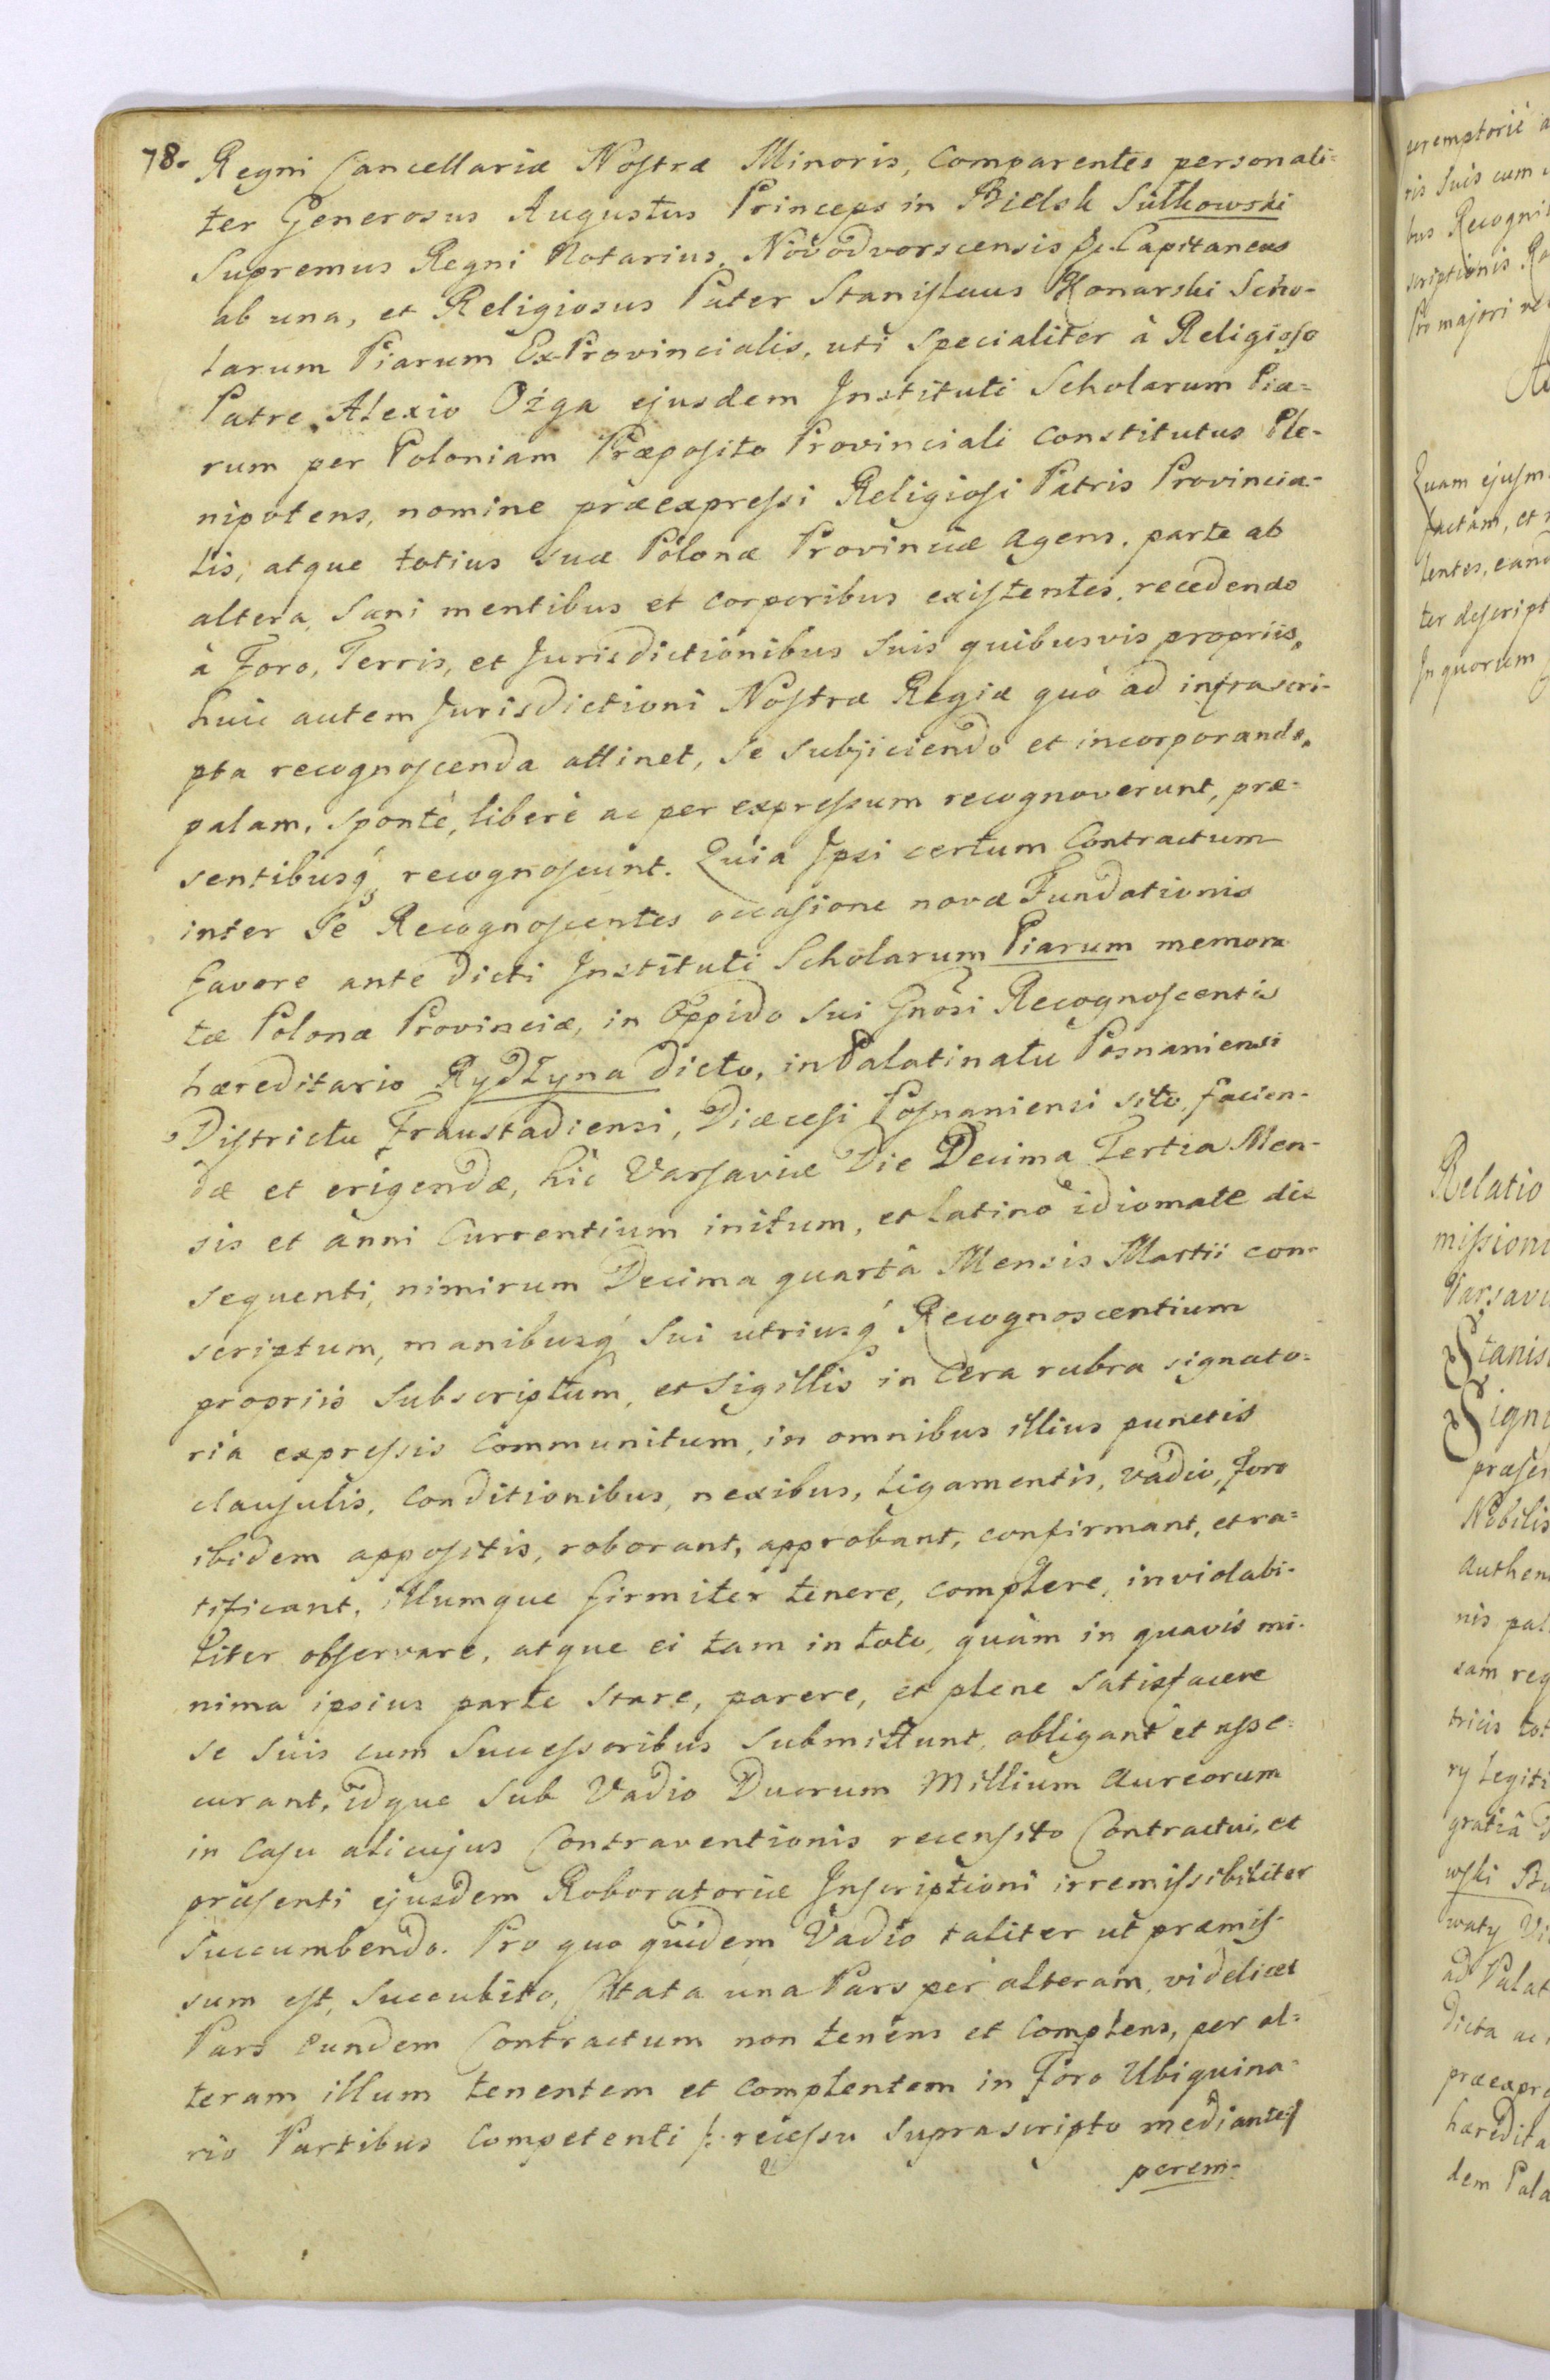 78. Regni Cancellariæ Nostræ Minoris, Comparentes personali=
ter Generosus Augustus Princeps in Bielsk Sułkowski
Supremus Regni Notarius, Novodvorscensis &c. Capitaneus
ab una, et Religiosus Pater Stanislaus Konarski Scho-
larum Piarum Ex-Provincialis, uti Specialiter à Religioso
Patre Alexio Ożga ejusdem Instituti Scholarum Pia=
rum per Poloniam Præposito Provinciali Constitutus Ple-
nipotens, nomine præexpressi Religiosi Patris Provincia-
lis, atque totius suæ Polonæ Provinciæ agens, parte ab
altera, Sani mentibus et Corporibus existentes, recedendo
à Foro, Terris, et Jurisdictionibus Suis quibusvis propriis,
huic autem Jurisdictioni Nostræ Regiæ quò ad infrascri-
pta recognoscenda attinet, se subjiciendo et incorporando,
palam, sponte, liberè ac per expressum recognoverunt, præ-
sentibusq́ recognoscunt. Quia Ipsi certum Contractum
inter Se Recognoscentes occasione novæ Fundationis
favore ante dicti Instituti Scholarum Piarum memora
tæ Polonæ Provinciæ, in Oppido Sui Gnosi Recognoscentis
hæreditario Rydzyna dicto, in Palatinatu Posnaniensi
Districtu Fraustadiensi, Diæcesi Posnaniensi sito, facien-
dæ et erigendæ, hic Varsaviæ Die Decima Tertia Men-
sis et anni Currentium initum, et Latino idiomate die
sequenti, nimirum Decima quartâ Mensis Martii con-
scriptum, manibusq́ Sui utriusq́ Recognoscentium
propriis Subscriptum, et Sigillis in Cera rubra signato=
ria expressis Communitum, in omnibus illius punctis
clausulis, Conditionibus, nexibus, Ligamentis, vadio, foro
ibidem appositis, roborant, approbant, confirmant, et ra=
tificant, illumque firmiter tenere, complere, inviolabi-
liter observare, atque ei tam in toto, quàm in quavis mi-
nima ipsius parte stare, parere, et plene Satisfacere
se Suis cum Successoribus Submittunt, obligant et asse=
curant, idque Sub Vadio Duorum Millium Aureorum
in Casu alicujus Contraventionis recensito Contractui, et
præsenti ejusdem Roboratoriæ Inscriptioni irremissibiliter
Succumbendo. Pro quo quidem Vadio taliter ut præmis-
sum est, Succubito, Citata una Pars per alteram, videlicet
Pars eundem Contractum non tenens et Complens, per al=
teram illum tenentem et Complentem in Foro Ubiquina=
rio Partibus Competenti /: recessu Suprascripto mediante :/
perem-
peremptoriè
Recogni
scriptionis
Pro majori
Quam ejusm
factam, et
tentes, eand
ter descript
In quorum
Relatio
missioni
Varsavi
Stanis
Signi
præse
Nobilis
Authen
nis pal
sam req
tricis tot
ry Legiti
gratiâ
wski
ad Palat
dicta ac
præexpre
hæredita
dem Pala